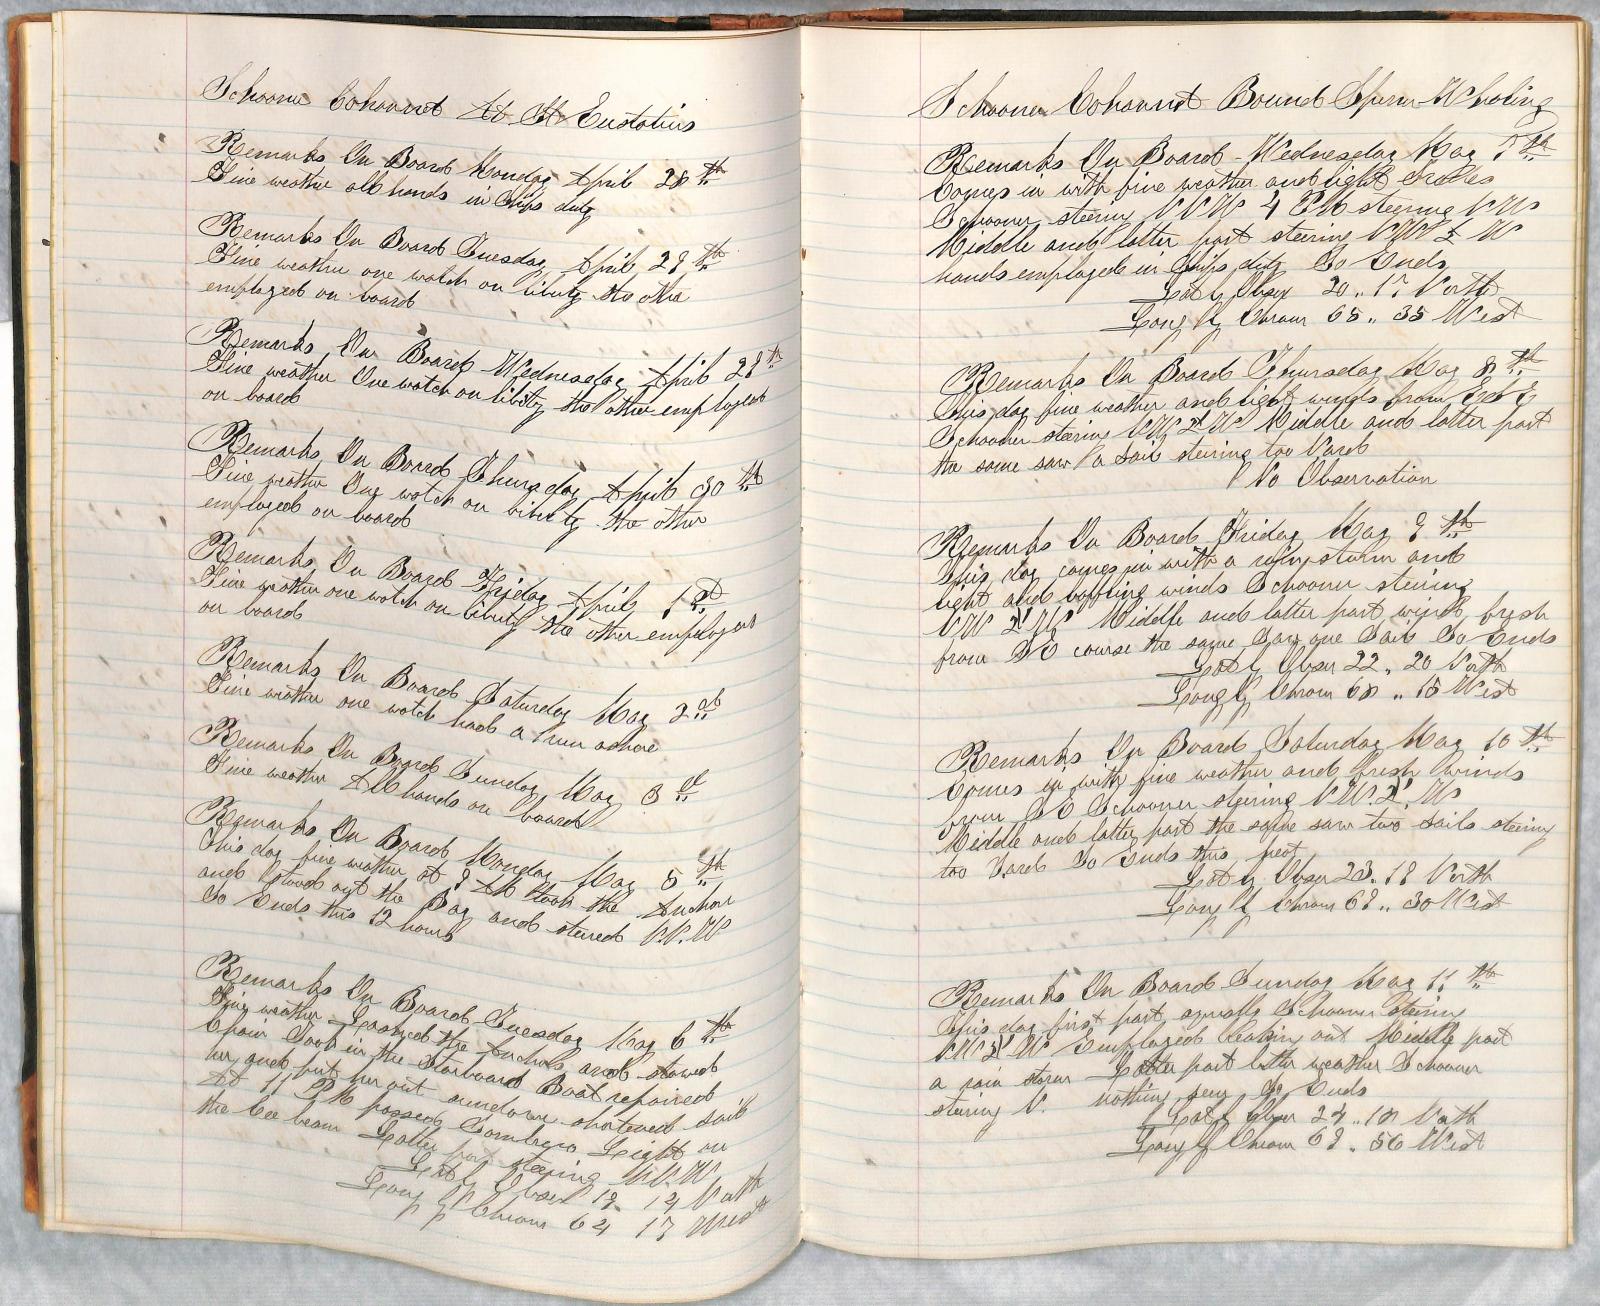 Schooner Cohannet At St Eustatius
Remarks On Board Monday April 28th
Fine weather all hands in Ships duty
Remarks On Board Tuesday April 29th
Fine weather one watch on liberty the other
employed on board
Remarks On Board Wednesday April 29th
Fine weather One watch on liberty the other employed
on board
Remarks On Board Thursday April 30th
Fine weather One watch on liberty the other
employed on board
Remarks On Board Friday April 1st
Fine weather one watch on liberty the other employed
on board
Remarks On Board Saturday May 2nd
Fine weather one watch had a run ashore
Remarks On Board Sunday May 3d
Fine weather All hands on board
Remarks On Board Monday May 5th
This day fine weather at 9 AM took the Anchor
and stood out the Bay and steered N.N.W
So Ends this 12 hours
Remarks On Board Tuesday May 6th
Fine weather the Anchors and stowed
Chain Took in the Starboard Boat repaired
her and put her out sundown shortened sail
At 11 PM passed Sombrero Light on
the Lee beam Latter part steering NNW
Lat by Obser 19 14 North
Long by Chrom 64 17 West
Schooner Cohannet Bound Sperm Whaling
Remarks On Board Wednesday May 7th
Comes in with fine weather and light Trades
Schooner steering NNW 4 PM steering NW
Middle and latter part steering NW ½ W
hands employed in Ships duty So Ends
Lat by Obser 20 .. 17 North
Long by Chrom 65 .. 35 West
Remarks On Board Thursday May 8th
This day fine weather and light winds from EbE
Schooner steering NW ½ W Middle and latter part
the same saw a Sail steering too Nard
No Observation
Remarks On Board Friday May 9th
This day comes in with a rain storm and
light and baffling winds Schooner steering
NW ½ W Middle and latter part winds fresh
from SE course the same Saw one Sail So Ends
Lat by Obser 22 .. 20 North
Long by Chrom 68 .. 15 West
Remarks On Board Saturday May 10th
Comes in with fine weather and fresh winds
from SE Schooner steering NW. ½. W
Middle and latter part the same saw two sails steering
too Nard So Ends this
Lat by Obser 23 .. 19 North
Long by Chrom 69 .. 30 West
Remarks On Board Sunday May 11th
This day first part squally Schooner steering
NW ½ W Employed Middle part
a rain storm Latter part better weather Schooner
steering N. nothing seen So Ends
Lat by Obser 24 .. 18 North
Long by Chrom 69 .. 56 West